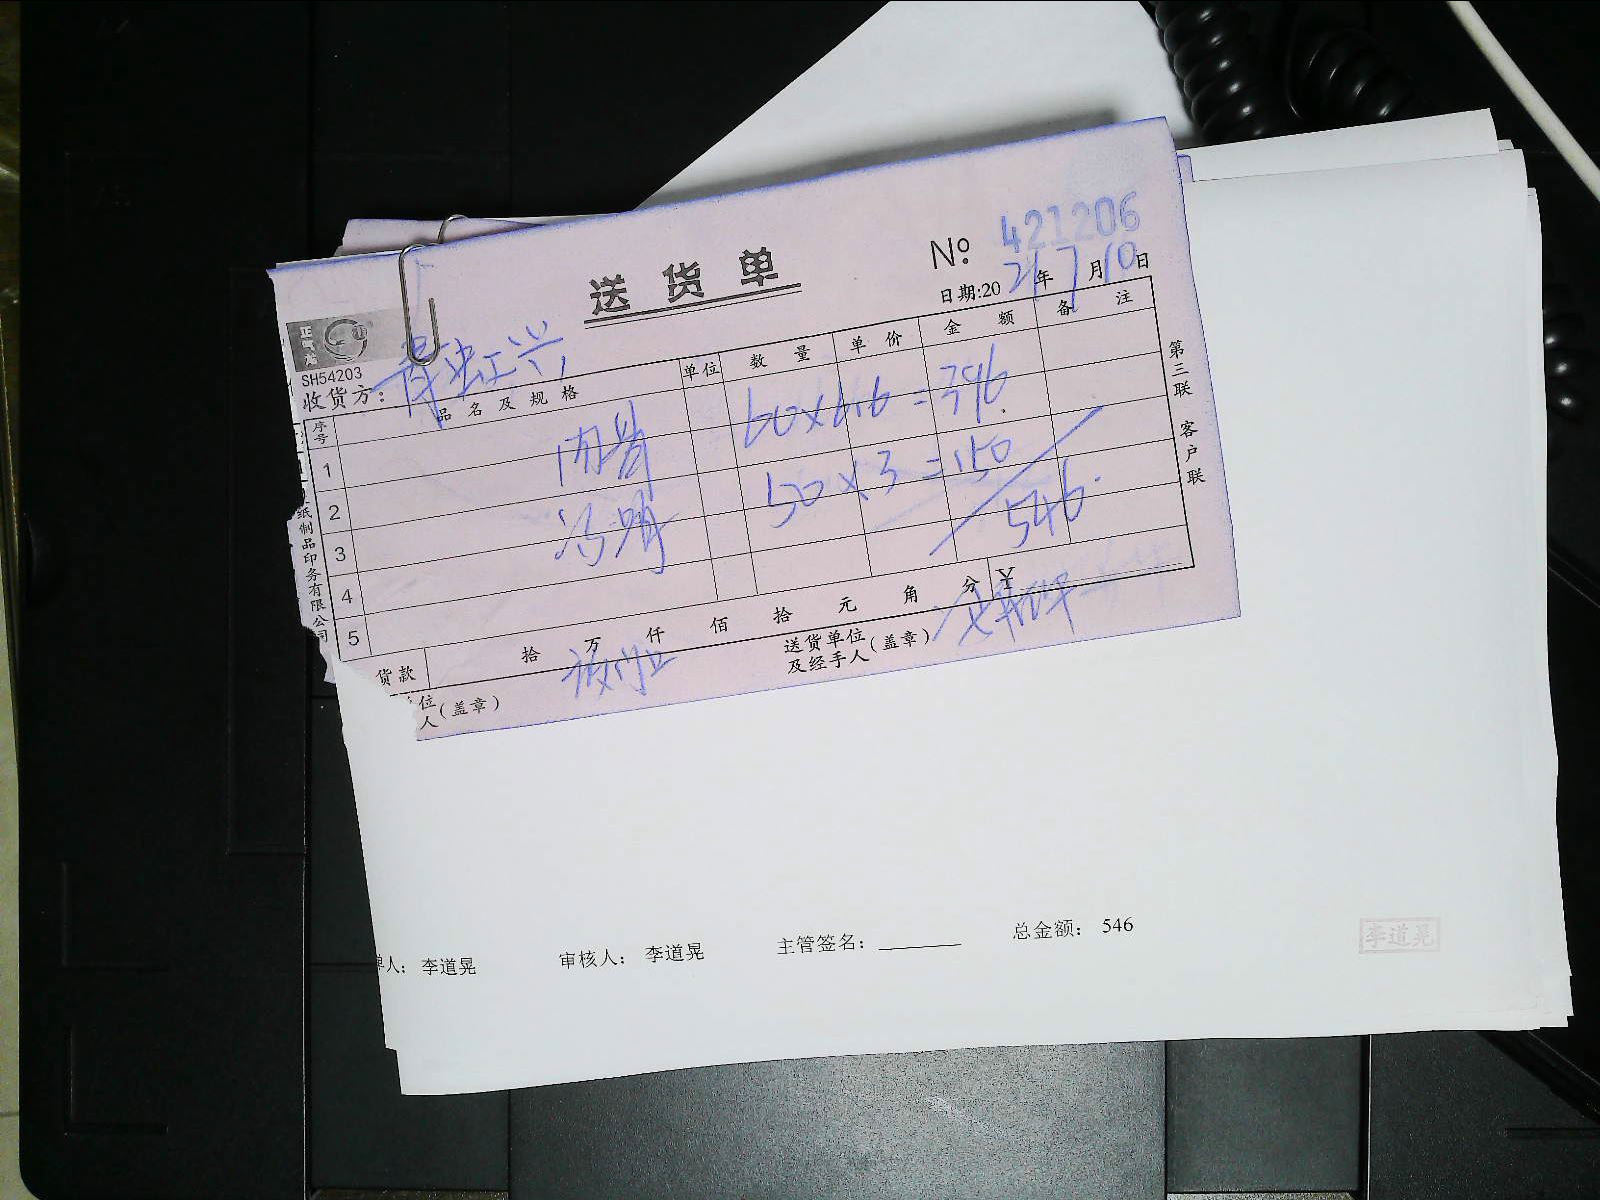 送货单
No 421206
日期:2021年7月10日
正气龙
SH54203
收货方:
序号 品名及规格 单位 数量 单价 金额 备注
1 60×6.6=396
2 50×3=150
3 546.
4
5
货款 拾 万 仟 佰 拾 元 角 分 ¥
位
人(盖章)
送货单位
及经手人(盖章)
第三联 客户联
纸制品印务有限公司
单人: 李道晃 审核人: 李道晃 主管签名: 总金额: 546
李道晃